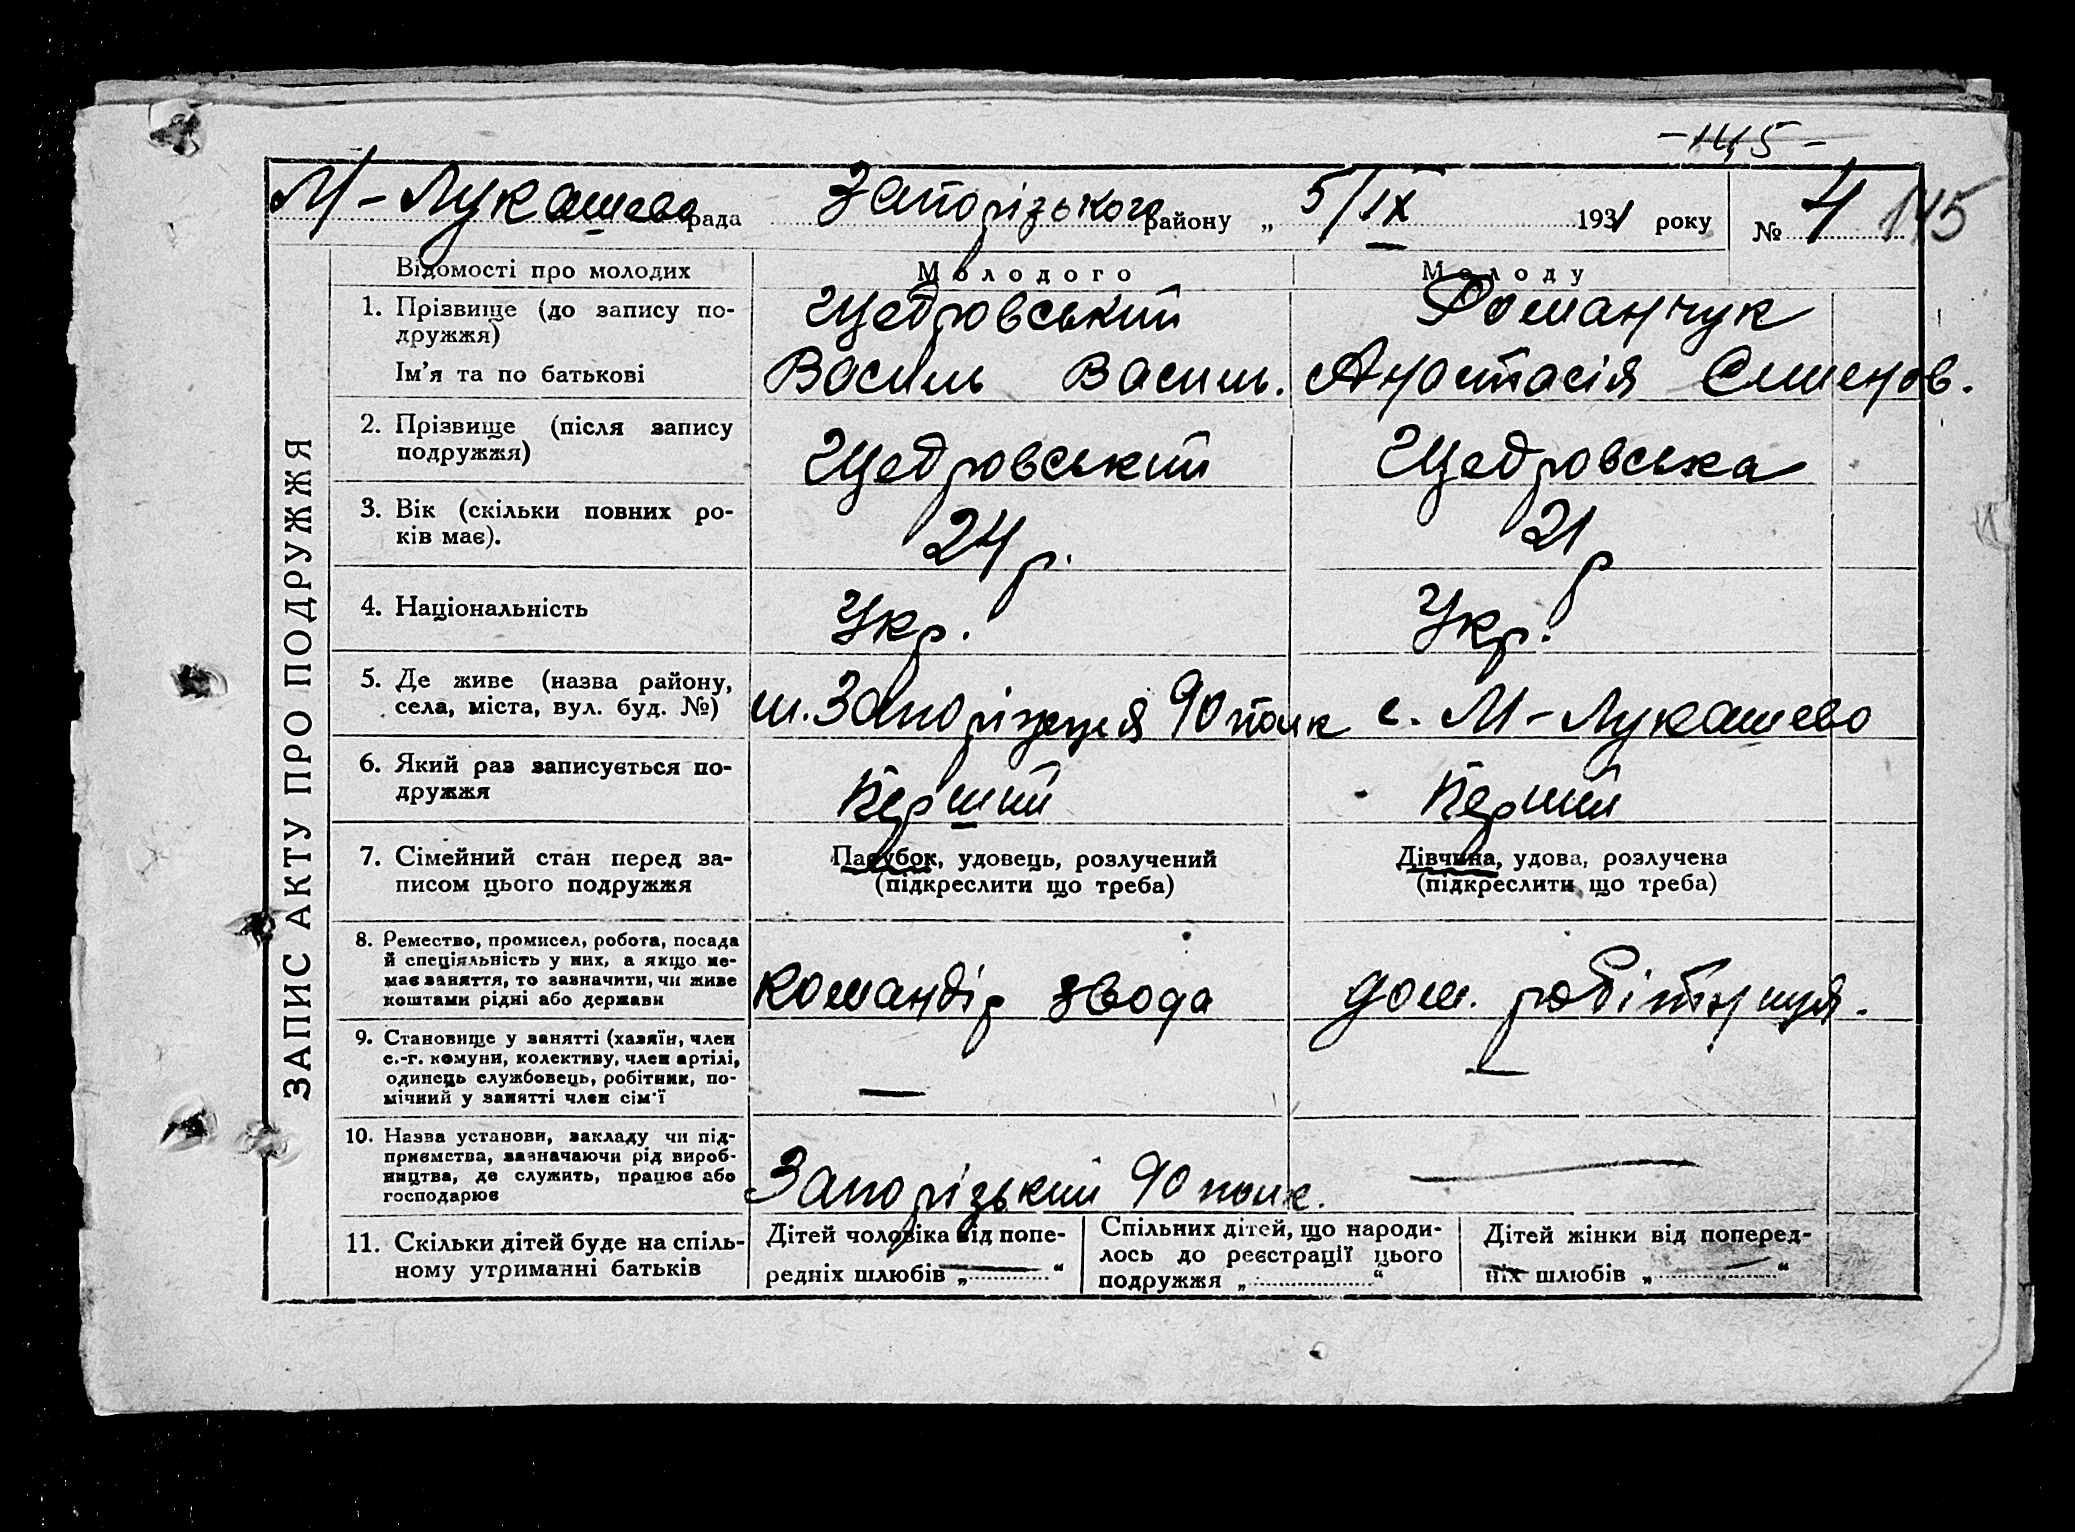 -145-
М-Лукашево рада Запорізького району „ 5/IX 1931 року № 4 145
ЗАПИС АКТУ ПРО ПОДРУЖЖЯ
Відомості про молодих Молодого Молоду
1. Прізвище (до запису по-
дружжя) Щедровський Романчук
Ім'я та по батькові Василь Васил. Анастасія Семенов.
2. Прізвище (після запису
подружжя) Щедровський Щедровська
3. Вік (скільки повних ро-
ків має). 24 р. 21 р
4. Національність Укр. Укр.
5. Де живе (назва району,
села, міста, вул. буд. №) м. Запоріжжя 90 полк с. М-Лукашево
6. Який раз записується по-
дружжя Перший Перший
7. Сімейний стан перед за- Парубок, удовець, розлучений Дівчина, удова, розлучена
писом цього подружжя (підкреслити що треба) (підкреслити що треба)
8. Ремество, промисел, робота, посада
й спеціяльність у них, а якщо не-
має заняття, то зазначити, чи живе
коштами рідні або держави командір звода дом. робітниця.
9. Становище у занятті (хазяїн, член
с.-г. комуни, колективу, член артілі,
одинець службовець, робітник, по-
мічний у занятті член сім'ї — —
10. Назва установи, закладу чи під-
приємства, зазначаючи рід вироб-
ництва, де служить, працює або
господарює Запорізький 90 полк. —
11. Скільки дітей буде на спіль-
ному утриманні батьків
Дітей чоловіка від попе-
редніх шлюбів „ — “
Спільних дітей, що народи-
лось до реєстрації цього
подружжя „ “
Дітей жінки від поперед-
ніх шлюбів „ — “